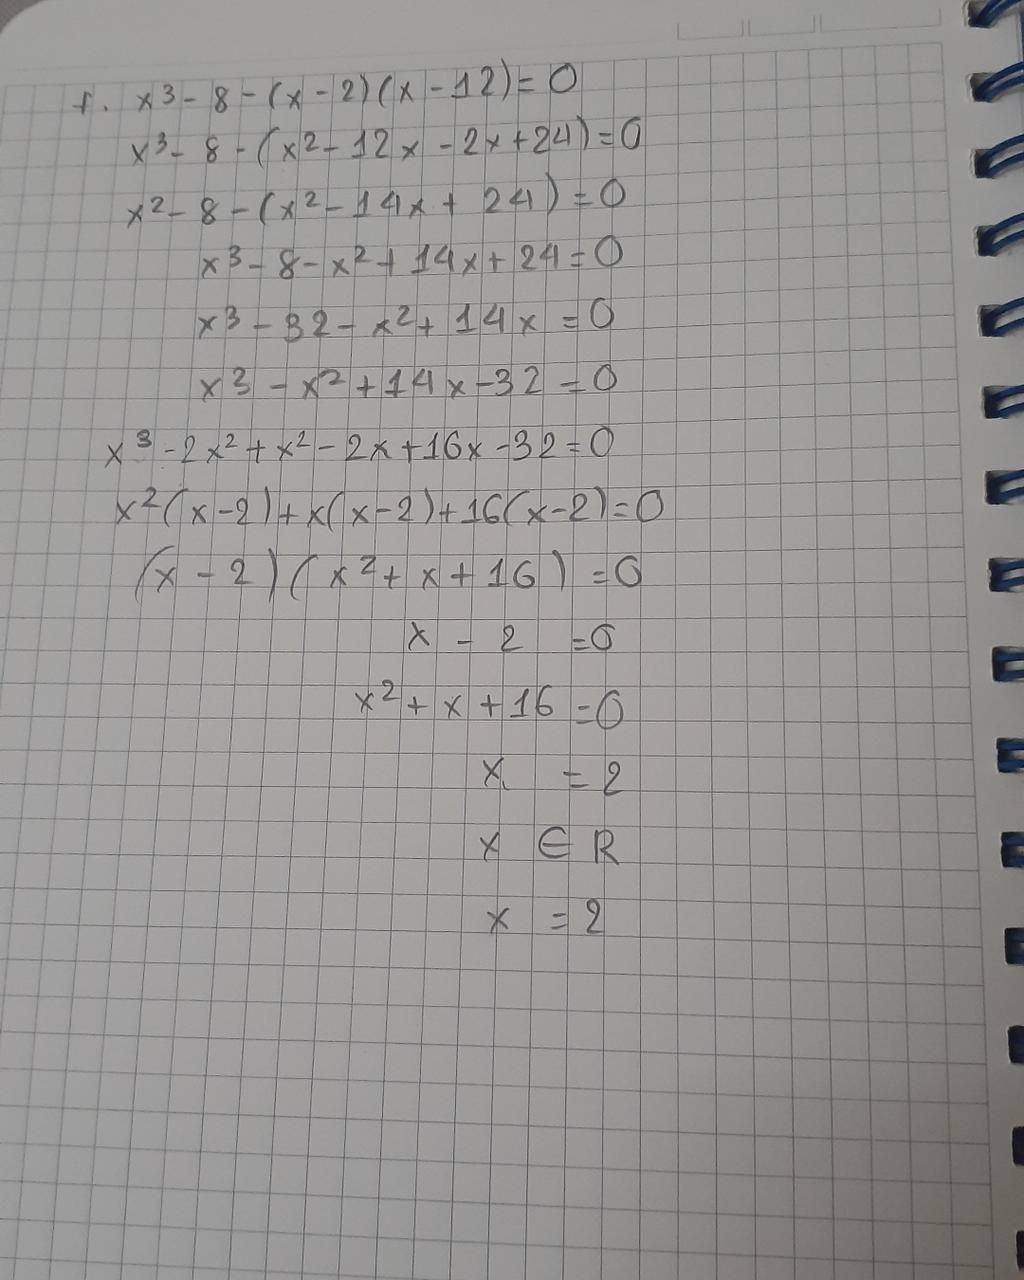 f. x³ - 8 - (x - 2)(x - 12) = 0
x³ - 8 - (x² - 12x - 2x + 24) = 0
x² - 8 - (x² - 14x + 24) = 0
x³ - 8 - x² + 14x + 24 = 0
x³ - 32 - x² + 14x = 0
x³ - x² + 14x - 32 = 0
x³ - 2x² + x² - 2x + 16x - 32 = 0
x²(x - 2) + x(x - 2) + 16(x - 2) = 0
(x - 2)(x² + x + 16) = 0
x - 2 = 0
x² + x + 16 = 0
x = 2
x ∈ R
x = 2